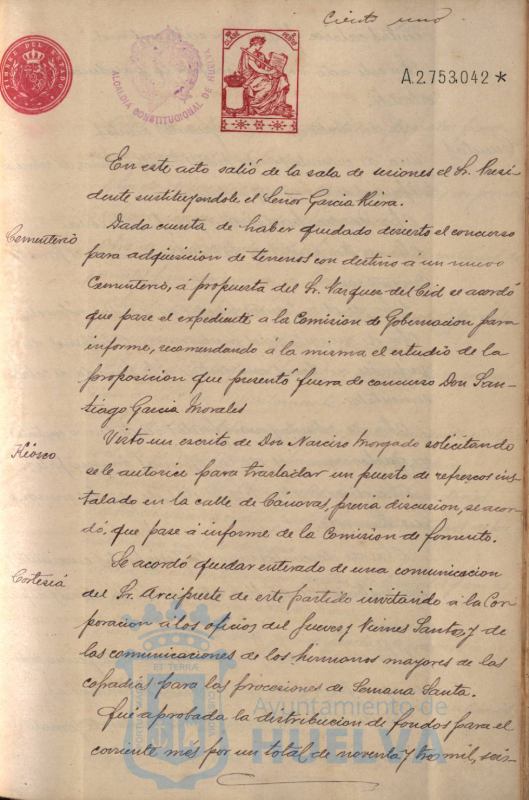 Ciento uno
TIMBRE DEL ESTADO
ALCALDIA CONSTITUCIONAL DE HUELVA
A.2.753.042 *
En este acto salió de la sala de sesiones el Sr. Presi-
dente sustituyendole el Señor Garcia Riera.
Cementerio
Dada cuenta de haber quedado desierto el concurso
para adquisicion de terrenos con destino á un nuevo
Cementerio, á propuesta del Sr. Vazquez del Cid se acordó
que pase el expediente á la Comision de Gobernacion para
informe, recomendando á la misma el estudio de la
proposicion que presentó fuera de concurso Don San-
tiago Garcia Morales
Kiosco
Visto un escrito de Don Narciso Morgado solicitando
se le autorice para trasladar un puesto de refrescos ins-
talado en la calle de Cánovas, previa discusion, se acor-
dó, que pase á informe de la Comision de fomento.
Cortesia
Se acordó quedar enterado de una comunicacion
del Sr. Arcipreste de este partido invitando á la Cor-
poracion á los oficios del Jueves y Viernes Santo, y de
las comunicaciones de los hermanos mayores de las
cofradias para las procesiones de Semana Santa.
Fue aprobada la distribucion de fondos para el
corriente mes por un total de noventa y tres mil, seis-
Ayuntamiento de
HUELVA